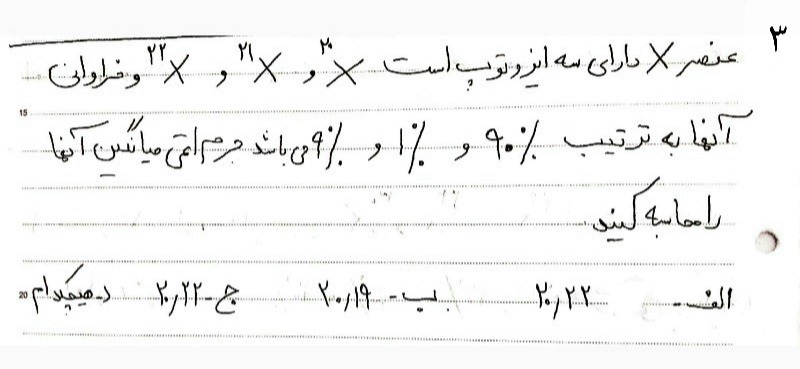 ۳
عنصر X دارای سه ایزوتوپ است ²⁰X و ²¹X و ²²X و فراوانی
15
آنها به ترتیب ۹۰٪ و ۱٪ و ۹٪ می باشد جرم اتمی میانگین آنها
را محاسبه کنید
20 الف- ۲۰,۲۲ ب- ۲۰,۱۹ ج- ۲۰,۲۲ د- هیچکدام